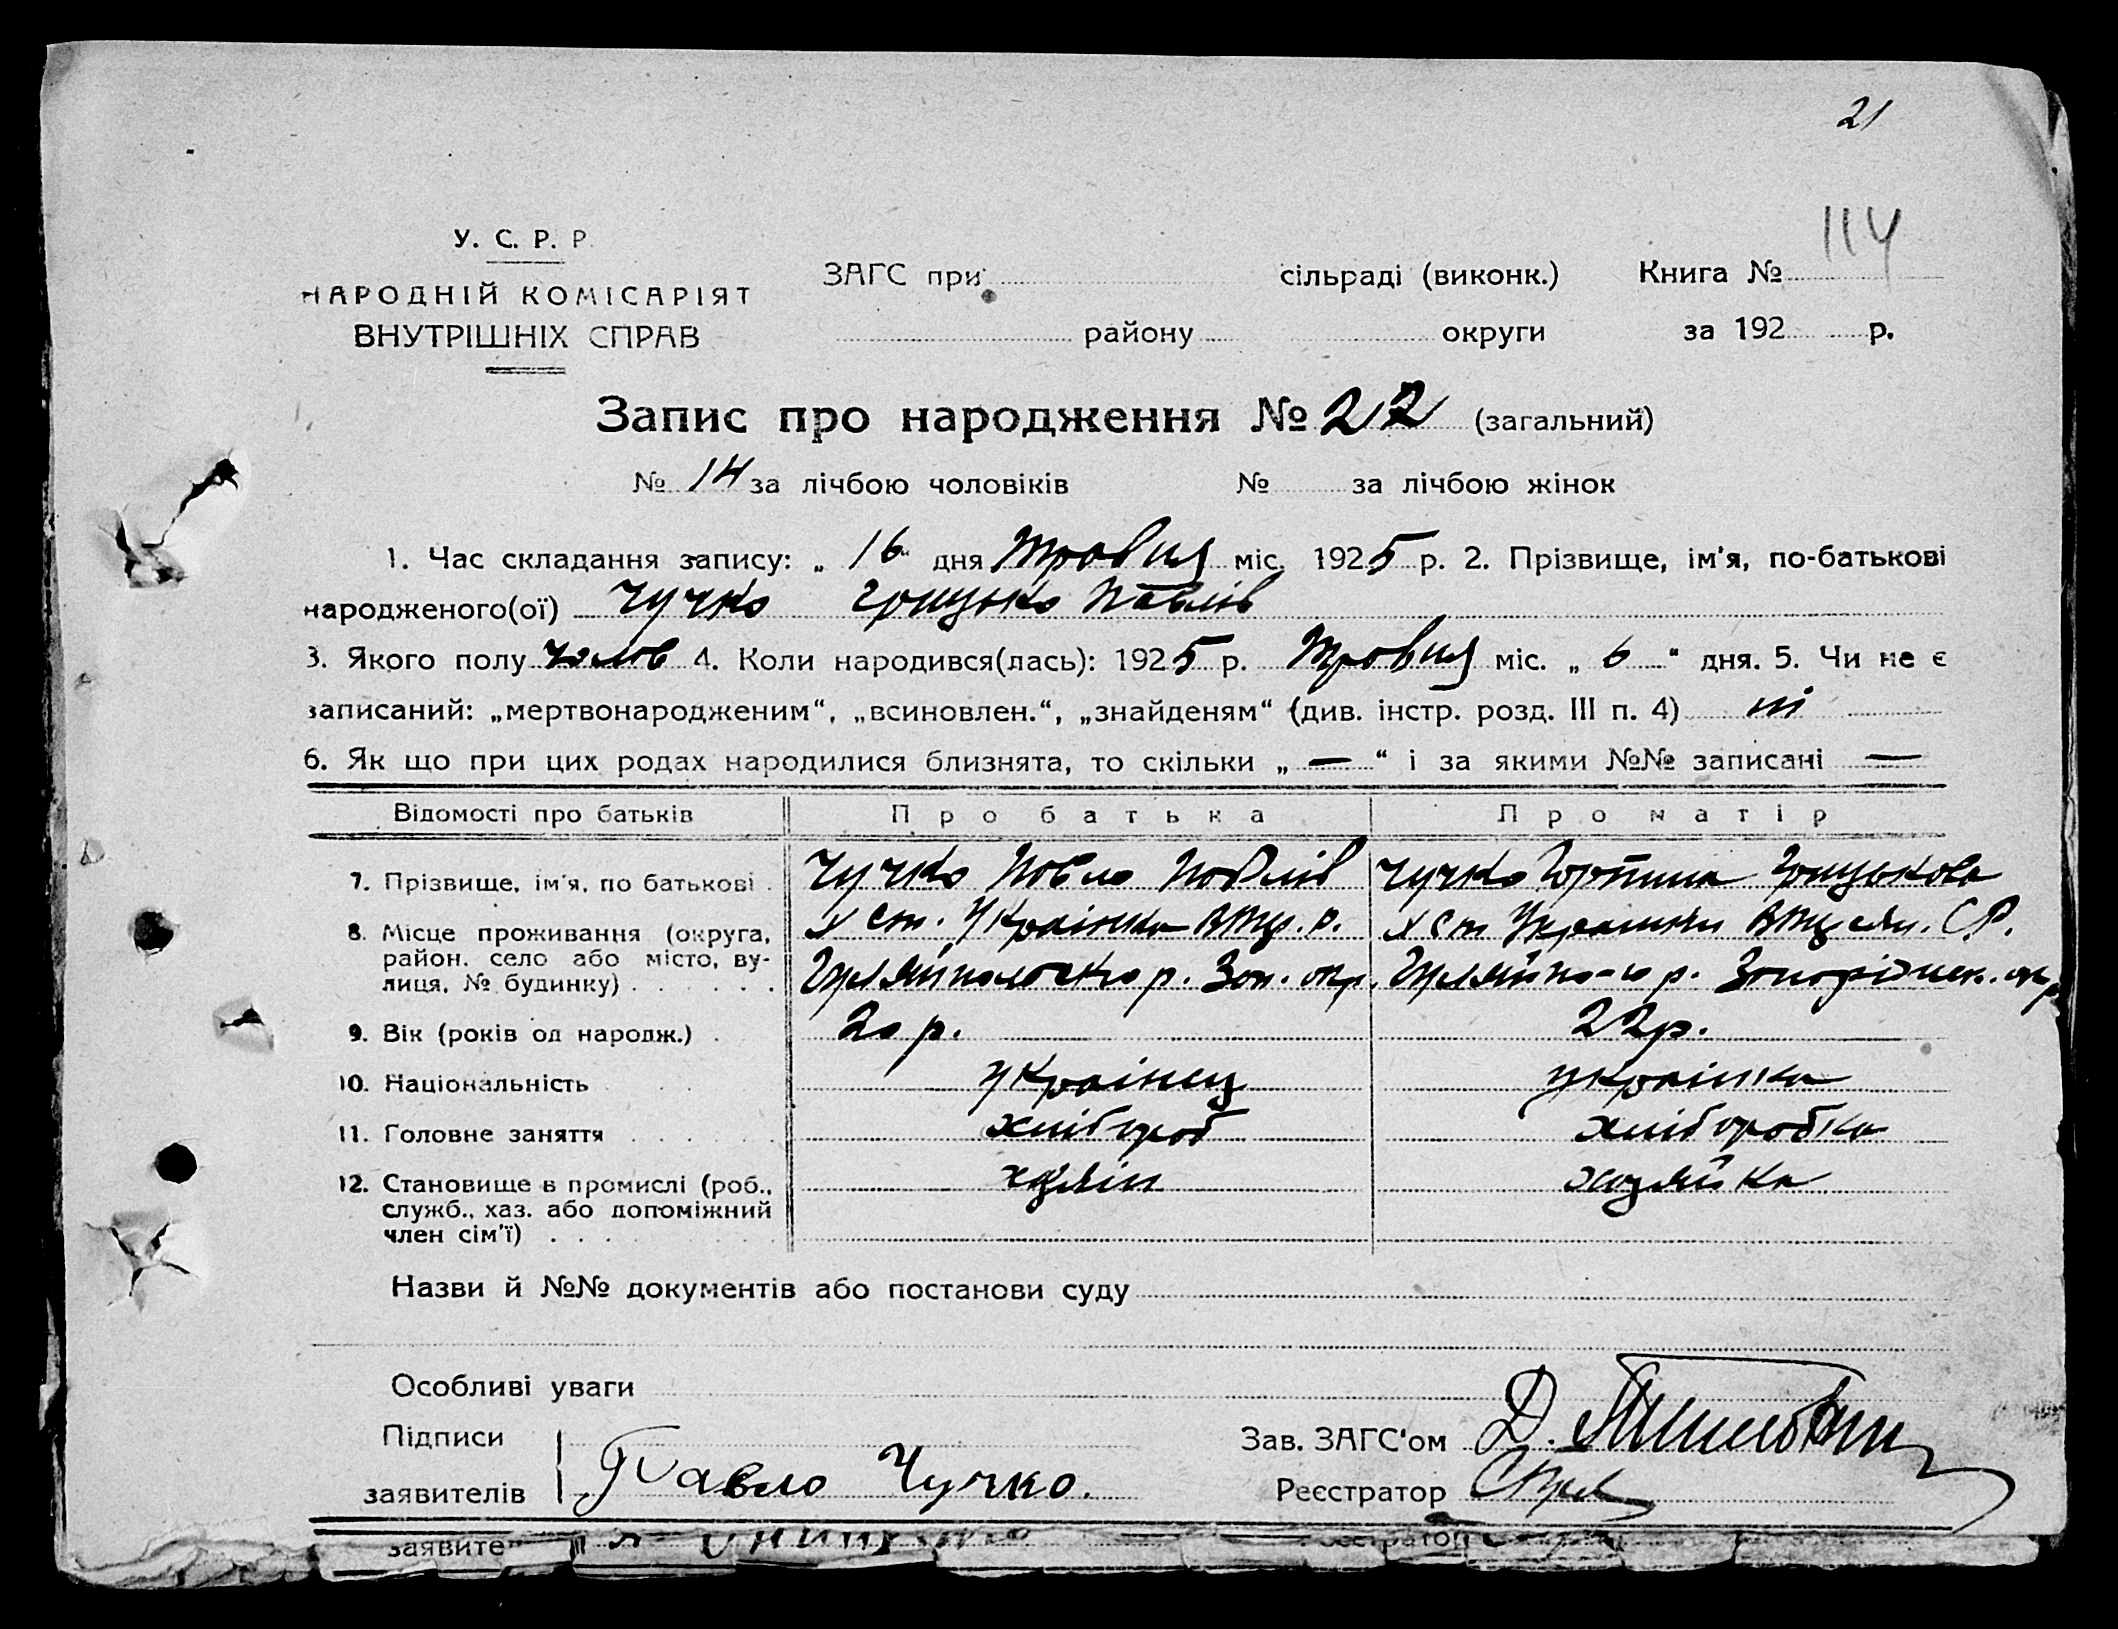 21
114
У. С. Р. Р.
НАРОДНІЙ КОМІСАРІЯТ
ВНУТРІШНІХ СПРАВ
ЗАГС при сільраді (виконк.) Книга №
району округи за 192 р.
Запис про народження № 22 (загальний)
№ 14 за лічбою чоловіків № за лічбою жінок
1. Час складання запису: „ 16 дня Травня міс. 1925 р. 2. Прізвище, ім'я, по-батькові
народженого(ої) Чучко Грицько Павлів
3. Якого полу чолов 4. Коли народився(лась): 1925 р. Травня міс. „ 6 “ дня. 5. Чи не є
записаний: „мертвонародженим“, „всиновлен.“, „знайденям“ (див. інстр. розд. III п. 4) ні
6. Як що при цих родах народилися близнята, то скільки „ — “ і за якими №№ записані —
Відомості про батьків Про батька Про матір
7. Прізвище, ім'я, по батькові . Чучко Павло Павлів Чучко Горпина Грицькова
8. Місце проживання (округа, район, село або місто, вулиця, № будинку) . . . . . . Х ст. Українка р. Гуляйпольско р. Зап. окр. Х ст Українки С.Р. Гуляйпо-го р. Запоріжск. окр
9. Вік (років од народж.) . 20 р. 22 р.
10. Національність українец українка
11. Головне заняття . . . . . хлібороб хліборобка
12. Становище в промислі (роб., служб., хаз. або допоміжний член сім'ї) . . . . хазяін хазяйка
Назви й №№ документів або постанови суду
Особливі уваги
Підписи
заявителів Павло Чучко.
Зав. ЗАГС'ом Д.
Реєстратор
заявите